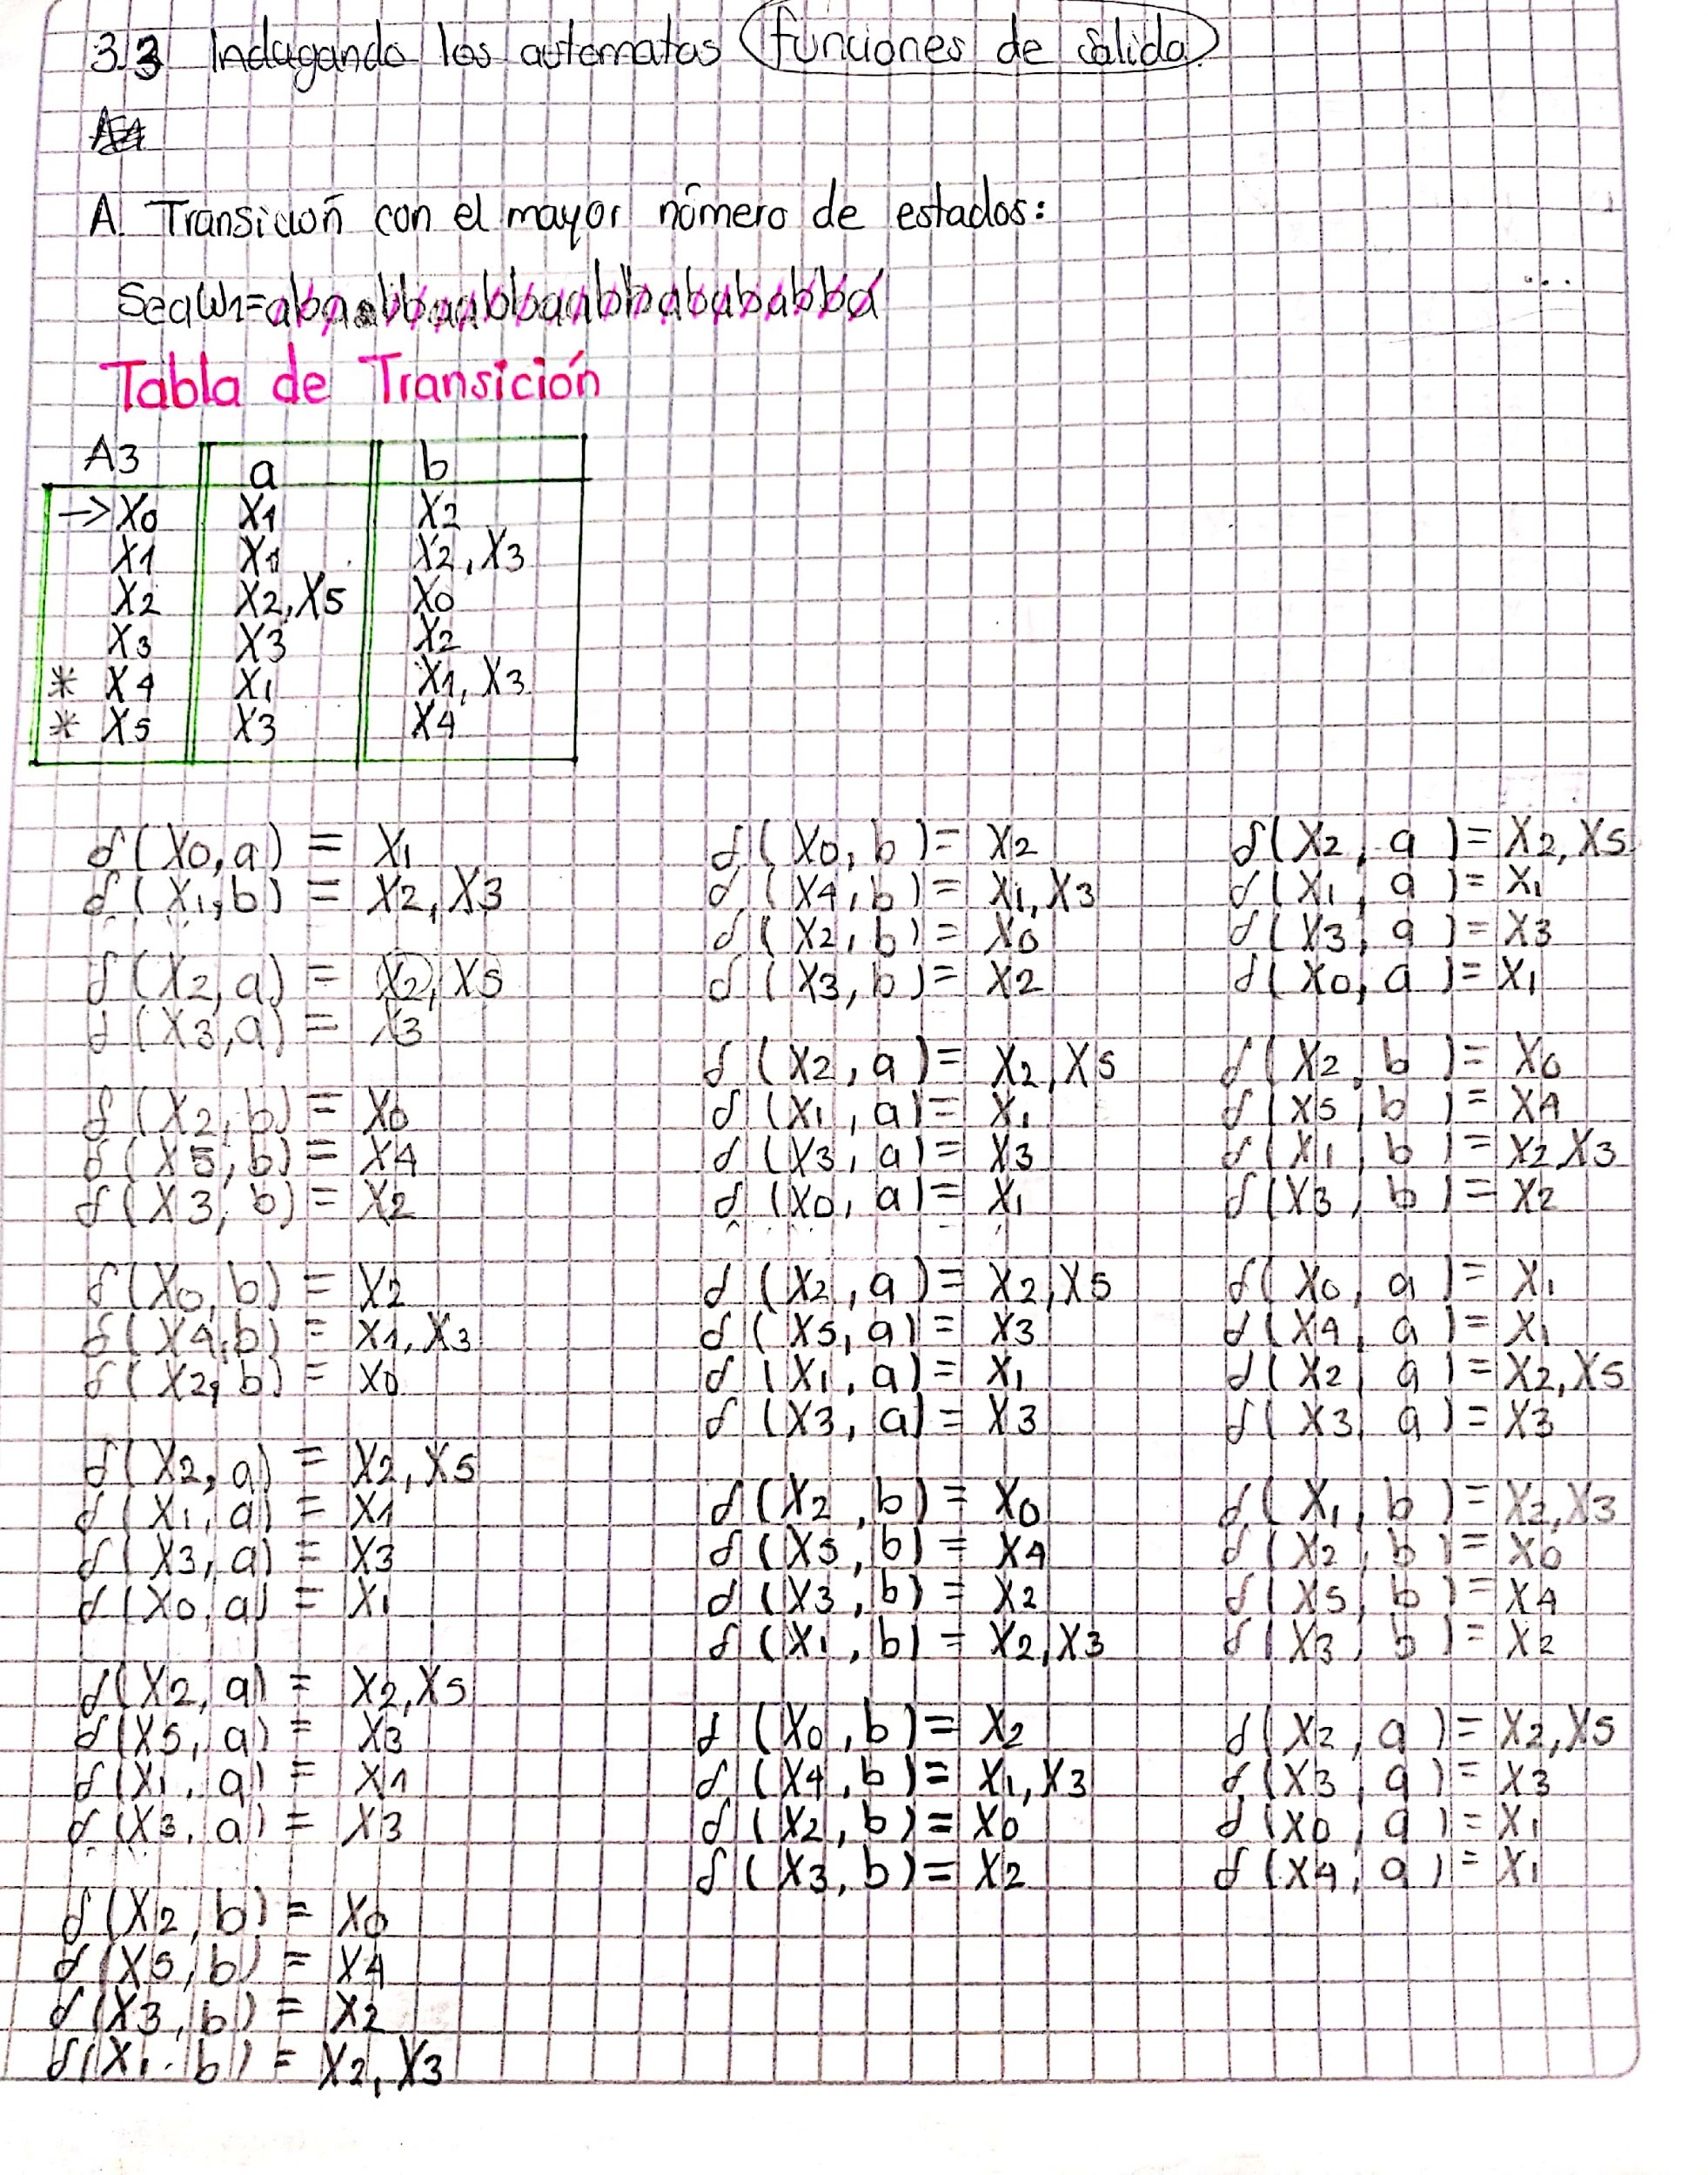 3.3 Indagando los automatas funciones de salida
A. Transición con el mayor número de estados:
Sea W1=
Tabla de Transición
A3 a b
→X0 X1 X2
X1 X1 X2, X3
X2 X2, X5 X0
X3 X3 X2
* X4 X1 X1, X3
* X5 X3 X4
δ(X0,a) = X1
δ(X1,b) = X2, X3
δ(X2,a) = X2, X5
δ(X3,a) = X3
δ(X2,b) = X0
δ(X5,b) = X4
δ(X3,b) = X2
δ(X0,b) = X2
δ(X4,b) = X1, X3
δ(X2,b) = X0
δ(X2,a) = X2, X5
δ(X1,a) = X1
δ(X3,a) = X3
δ(X0,a) = X1
δ(X2,a) = X2,X5
δ(X5,a) = X3
δ(X1,a) = X1
δ(X3,a) = X3
δ(X2,b) = X0
δ(X5,b) = X4
δ(X3,b) = X2
δ(X1,b) = X2, X3
δ(X0,b) = X2
δ(X4,b) = X1,X3
δ(X2,b) = X0
δ(X3,b) = X2
δ(X2,a) = X2,X5
δ(X1,a) = X1
δ(X3,a) = X3
δ(X0,a) = X1
δ(X2,a) = X2,X5
δ(X5,a) = X3
δ(X1,a) = X1
δ(X3,a) = X3
δ(X2,b) = X0
δ(X5,b) = X4
δ(X3,b) = X2
δ(X1,b) = X2,X3
δ(X0,b) = X2
δ(X4,b) = X1,X3
δ(X2,b) = X0
δ(X3,b) = X2
δ(X2,a) = X2,X5
δ(X1,a) = X1
δ(X3,a) = X3
δ(X0,a) = X1
δ(X2,b) = X0
δ(X5,b) = X4
δ(X1,b) = X2,X3
δ(X3,b) = X2
δ(X0,a) = X1
δ(X4,a) = X1
δ(X2,a) = X2,X5
δ(X3,a) = X3
δ(X1,b) = X2,X3
δ(X2,b) = X0
δ(X5,b) = X4
δ(X3,b) = X2
δ(X2,a) = X2,X5
δ(X3,a) = X3
δ(X0,a) = X1
δ(X4,a) = X1